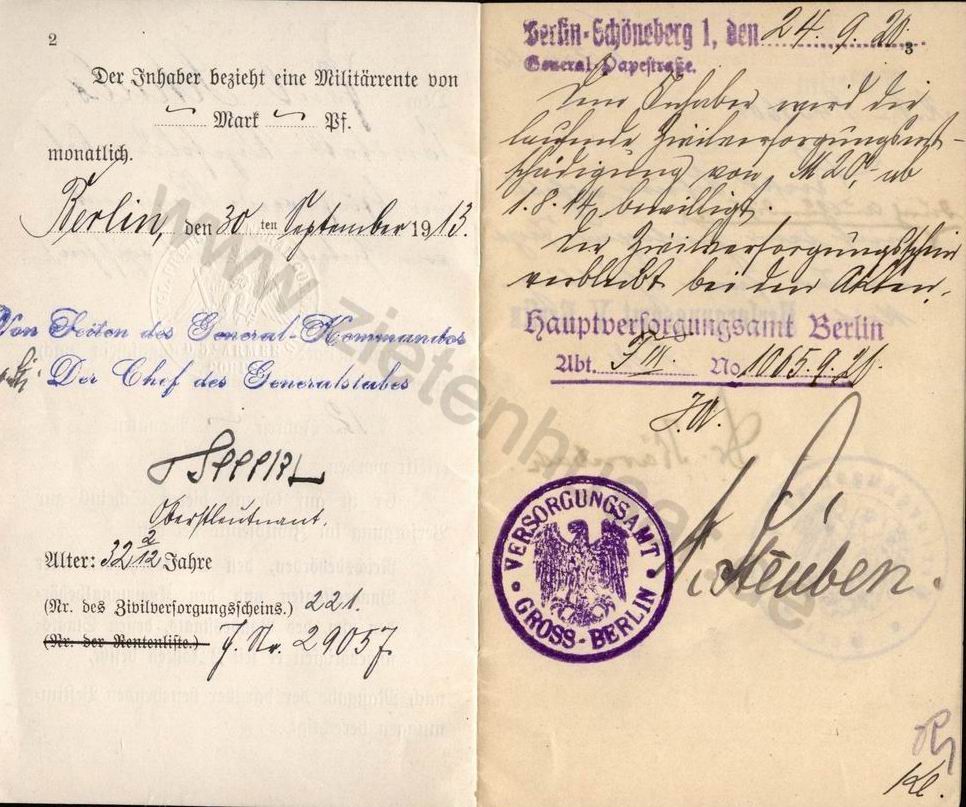 2
Der Inhaber bezieht eine Militärrente von
Mark Pf.
monatlich.
Berlin, den 30 ten September 1913.
Von Seiten des General-Kommandos
Der Chef des Generalstabes
vSeeckt
Oberstleutnant.
Alter: 32 2/12 Jahre
(Nr. des Zivilversorgungsscheins.) 221.
(Nr. der Rentenliste.) J. Nr. 29057
Berlin-Schöneberg 1, den 24.9.20.
3
General-Papestraße.
Dem Inhaber wird die
laufende Zivilversorgungsent-
schädigung von M 20,- ab
1.8.14 bewilligt.
Der Zivilversorgungsschein
verbleibt bei den Akten.
Hauptversorgungsamt Berlin
Abt. No 1065.9.20.
J.A.
Steuben.
VERSORGUNGSAMT
GROSS-BERLIN
Kl.